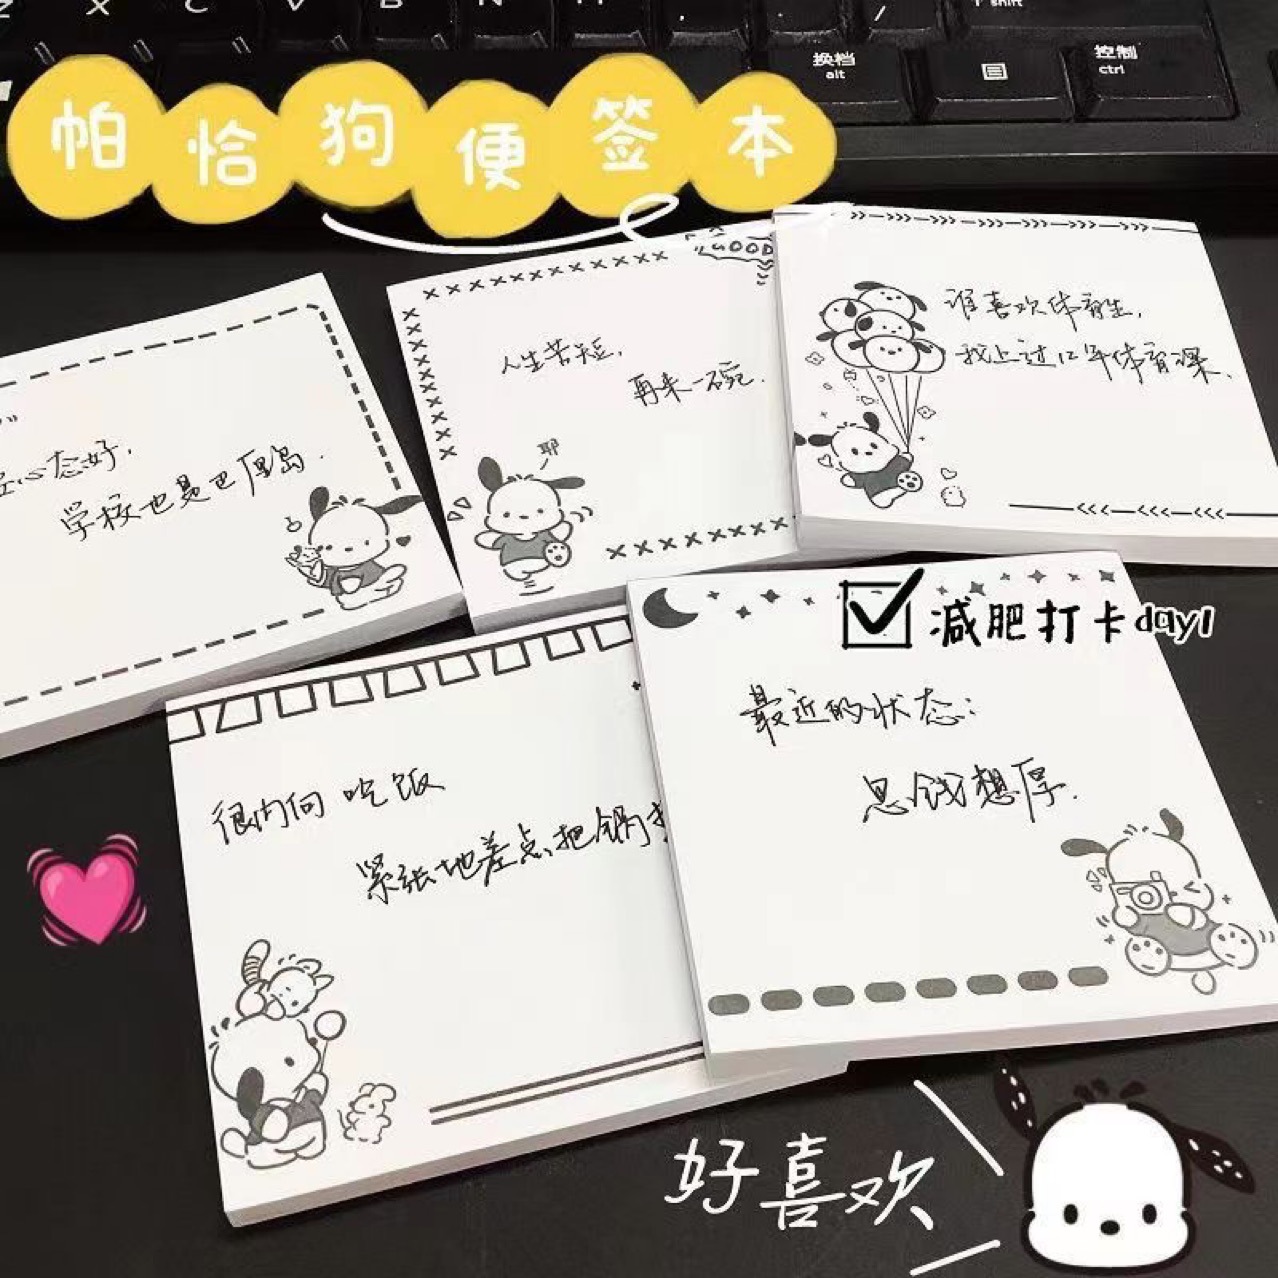 Z X C V B N M
shift
换档
alt
控制
ctrl
帕恰狗便签本
GOOD
心态好,
学校也是巴厘岛.
人生苦短,
再来一碗.
耶
谁喜欢体育生,
我上过12年体育课.
很内向 吃饭
紧张地差点把锅
减肥打卡day1
最近的状态:
思钱想厚.
好喜欢